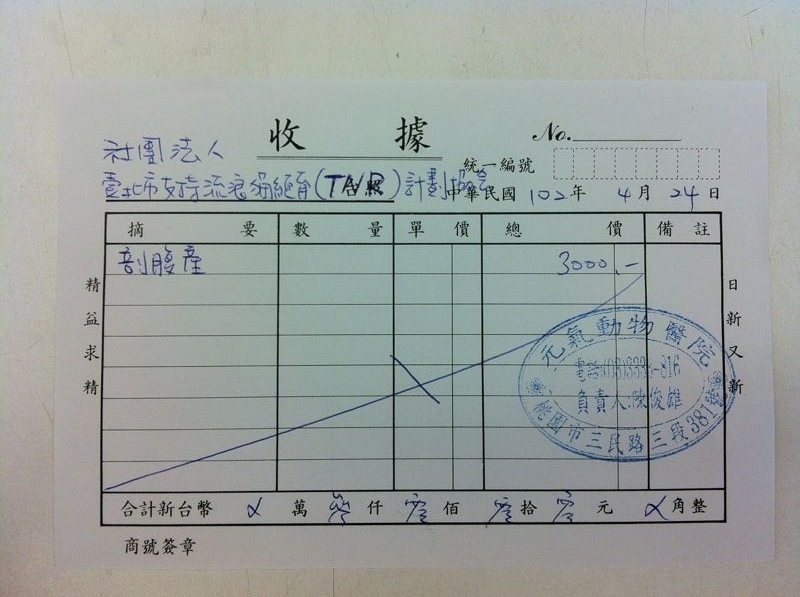 收 據
No.
社團法人
統一編號
臺北市支持流浪貓絕育(TNR)計劃協會
台照
中華民國 102 年 4 月 24 日
摘要 數量 單價 總價 備註
剖腹產 3000.-
精益求精
日新又新
元氣動物醫院
負責人:陳俊雄
桃園市三民路三段381號
合計新台幣 萬 仟 零佰 零拾 零元 角整
商號簽章